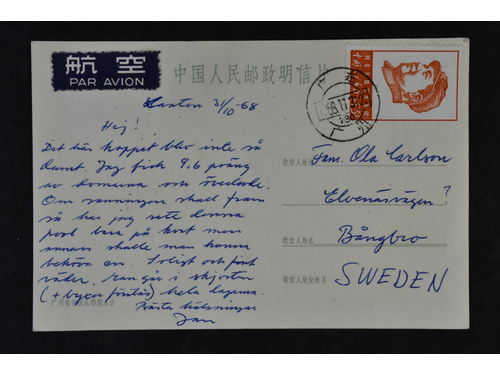 航空
PAR AVION
中国人民邮政明信片
Kanton 31/10-68
Hej!
Det här hoppet blev inte så
dumt. Jag fick 9.6 poäng
av domarna och överlevde.
Om sanningen skall fram
så har jag sett denna
pool bara på kort men
annars skulle man kunna
behöva en. Soligt och fint
väder. Man går i skjortan
(+ byxor förstås) hela dagarna.
Bästa hälsningar
Jan
广东
68.11.2
广州
中国人民邮政
收信人地址
Fam. Ola Carlson
Elvenäsvägen?
收信人姓名
Bångbro
寄信人地址姓名
SWEDEN